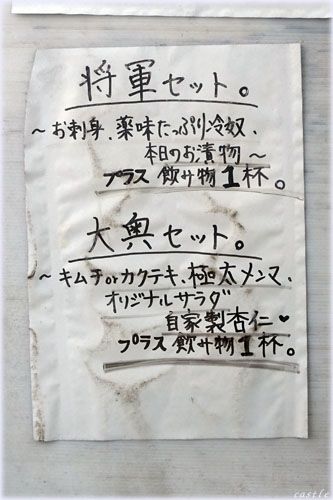 将軍セット。
～お刺身、薬味たっぷり冷奴、
本日のお漬物～
プラス飲み物1杯。
大奥セット。
～キムチorカクテキ、極太メンマ、
オリジナルサラダ
自家製杏仁♥
プラス飲み物1杯。
castle